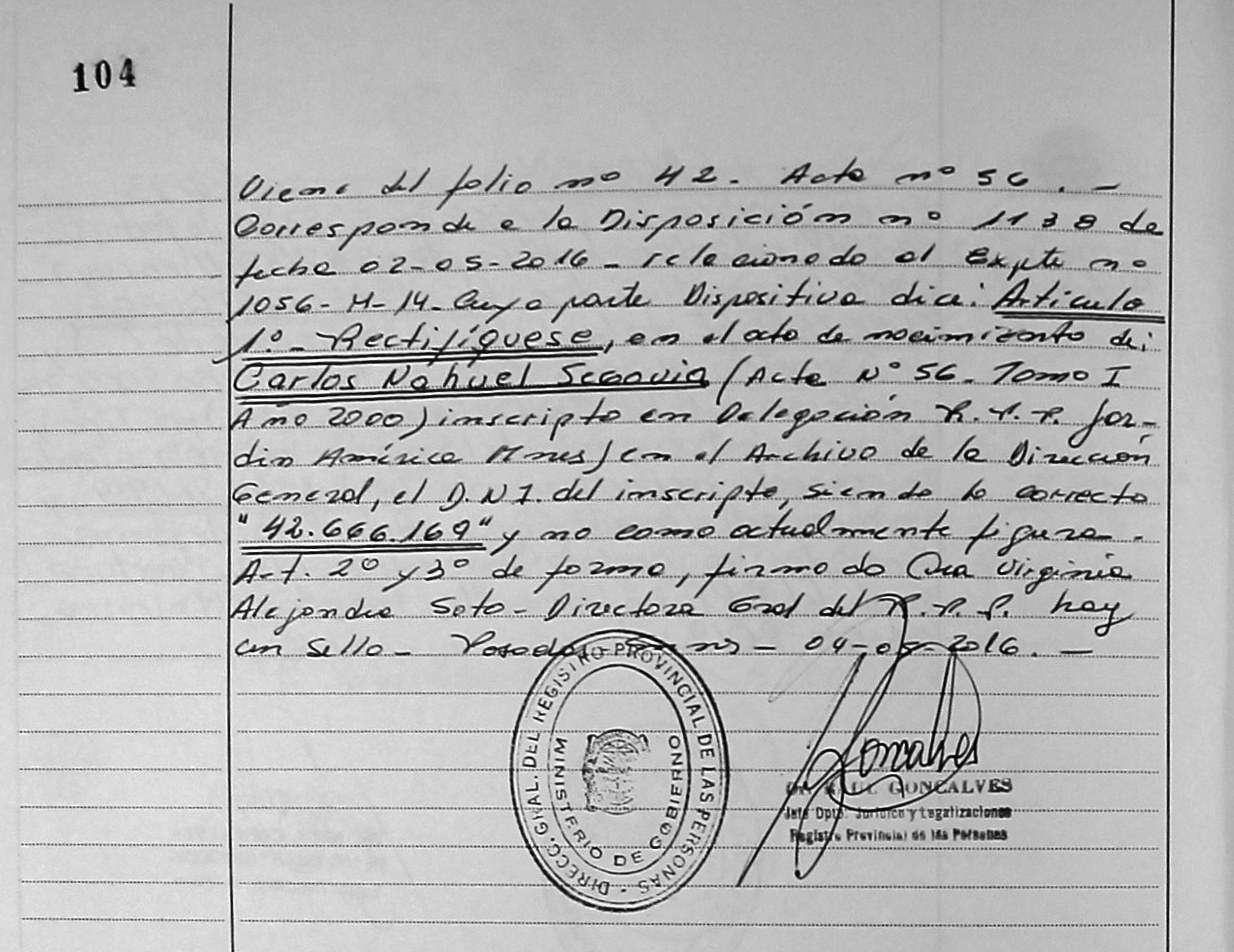 104
Viene del folio nº 42. Acta nº 56. -
Corresponde a la Disposición nº 1138 de
fecha 02-05-2016 - relacionado al Expte nº
1056-H-14. Cuya parte Dispositiva dice: Artículo
1º- Rectifíquese, en el acta de nacimiento de:
Carlos Nahuel Segovia (Acta Nº 56. Tomo I
Año 2000) inscripto en Delegación R.P.P. Jar-
din América Mnes) en el Archivo de la Dirección
General, el D.N.I. del inscripto, siendo lo correcto
"42.666.169" y no como actualmente figura.
Art. 2º y 3º de forma, firmado Dra Virginia
Alejandra Soto - Directora Gral del R.P.P. hay
un sello - Posadas - - 04-05-2016. -
DIRECC. GRAL. DEL REGISTRO PROVINCIAL DE LAS PERSONAS -
MINISTERIO DE GOBIERNO
Goncalves
Dr. RAUL GONCALVES
Jefe Dpto. Jurídico y Legalizaciones
Registro Provincial de las Personas